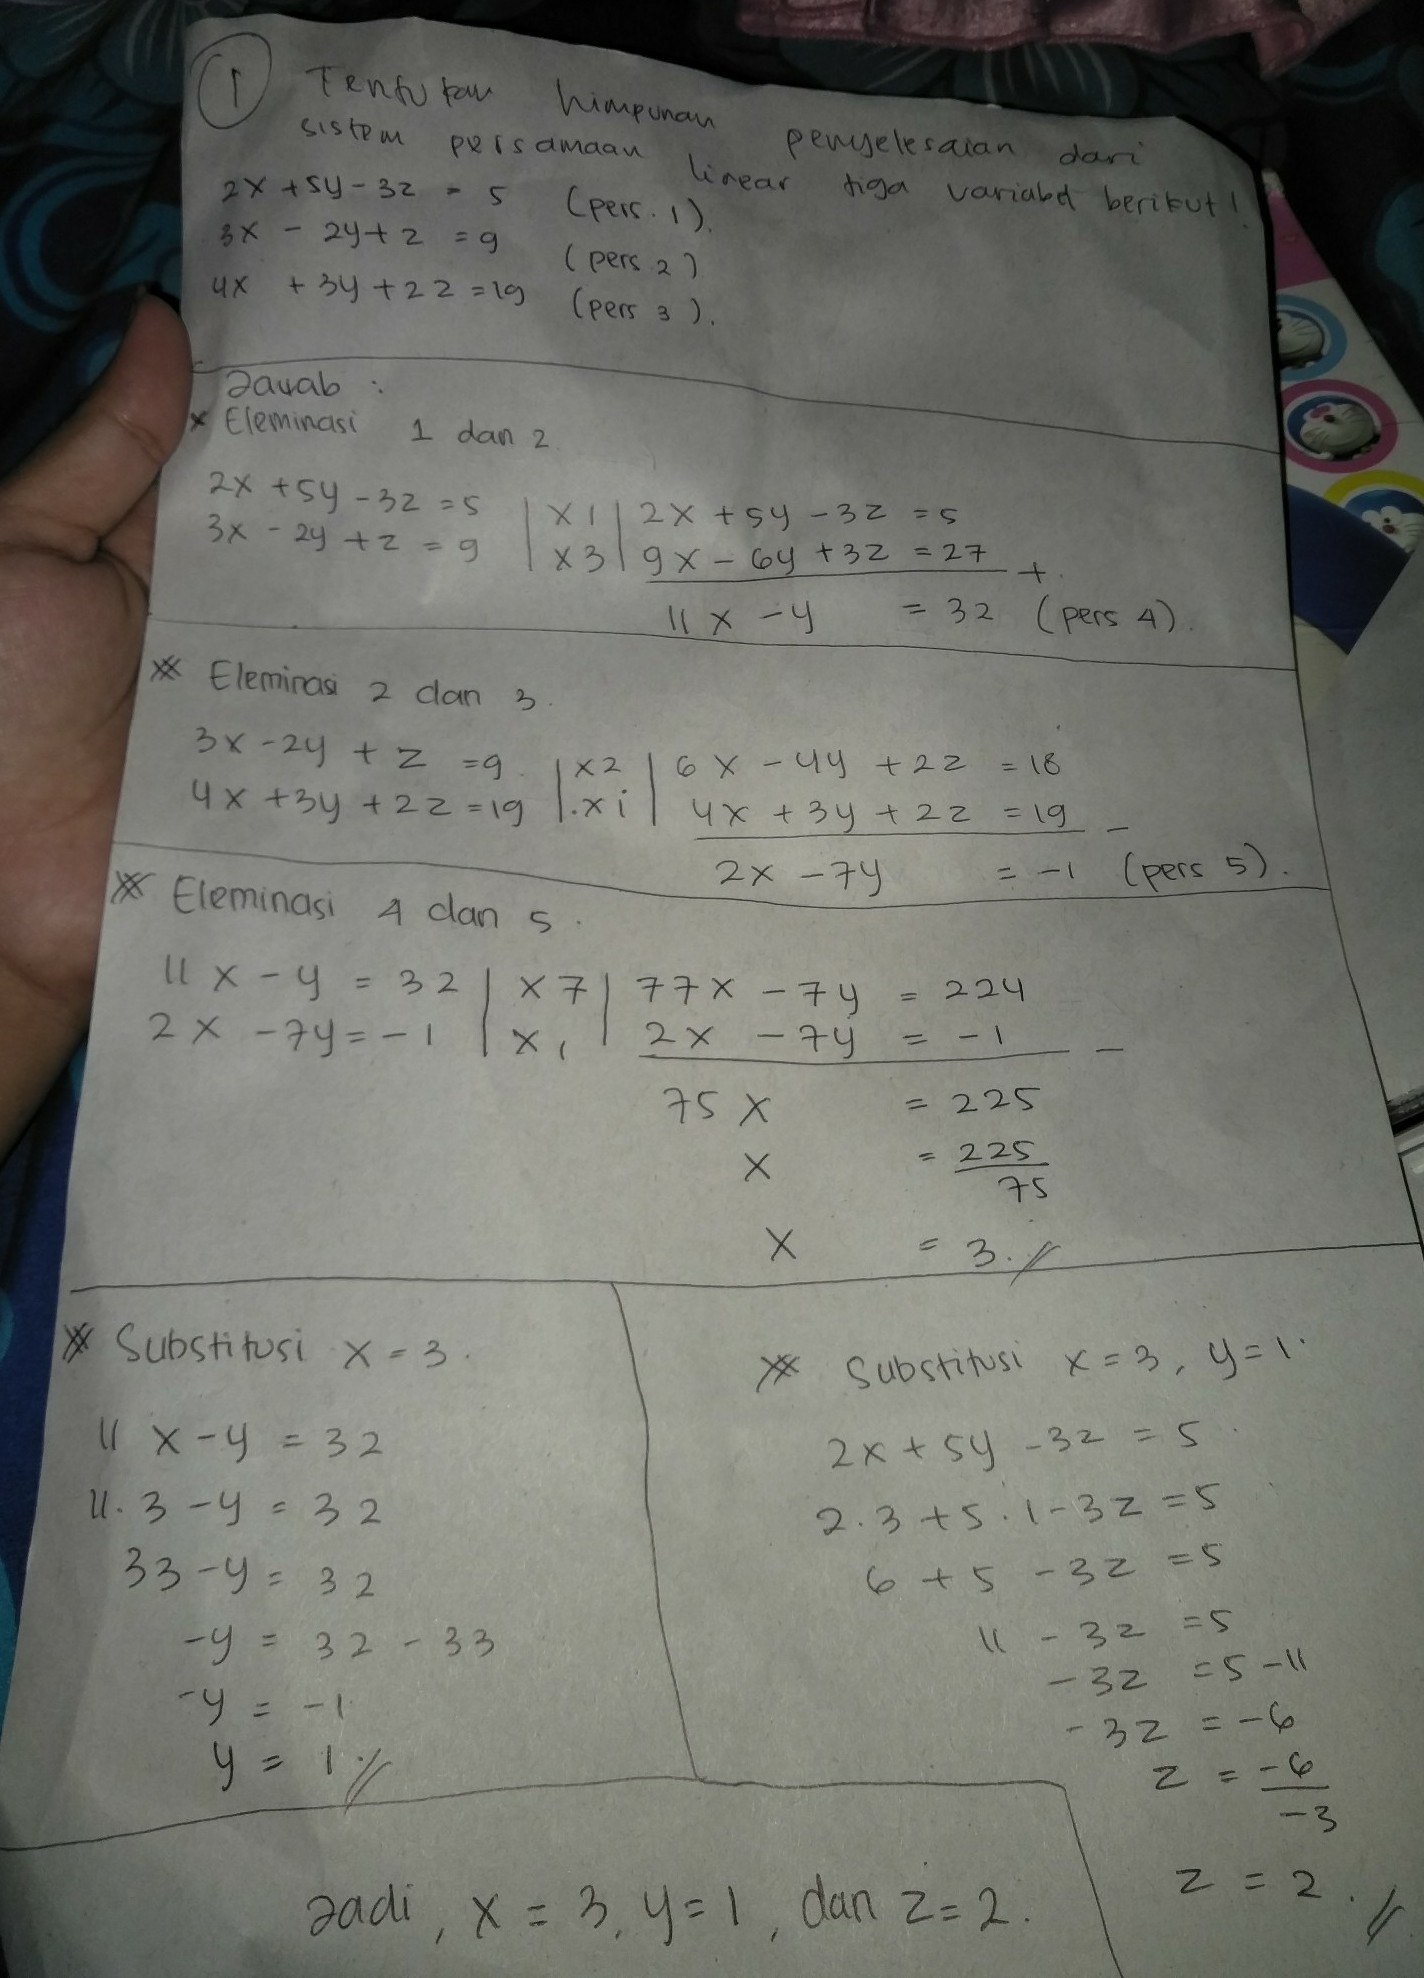 1 Tentukan himpunan penyelesaian dari
sistem persamaan linear tiga variabel berikut!
2x + 5y - 3z = 5 (pers. 1).
3x - 2y + z = 9 (pers 2)
4x + 3y + 2z = 19 (pers 3).
Jawab :
* Eleminasi 1 dan 2
2x + 5y - 3z = 5 | x1 | 2x + 5y - 3z = 5
3x - 2y + z = 9 | x3 | 9x - 6y + 3z = 27 +
11x - y = 32 (pers 4).
* Eleminasi 2 dan 3.
3x - 2y + z = 9 | x2 | 6x - 4y + 2z = 18
4x + 3y + 2z = 19 | x1 | 4x + 3y + 2z = 19 -
2x - 7y = -1 (pers 5).
* Eleminasi 4 dan 5.
11x - y = 32 | x7 | 77x - 7y = 224
2x - 7y = -1 | x1 | 2x - 7y = -1 -
75x = 225
x = 225/75
x = 3.//
* Substitusi x = 3.
11x - y = 32
11.3 - y = 32
33 - y = 32
-y = 32 - 33
-y = -1
y = 1.//
* Substitusi x = 3, y = 1.
2x + 5y - 3z = 5
2.3 + 5.1 - 3z = 5
6 + 5 - 3z = 5
11 - 3z = 5
-3z = 5 - 11
-3z = -6
z = -6/-3
z = 2.//
Jadi, x = 3, y = 1, dan z = 2.